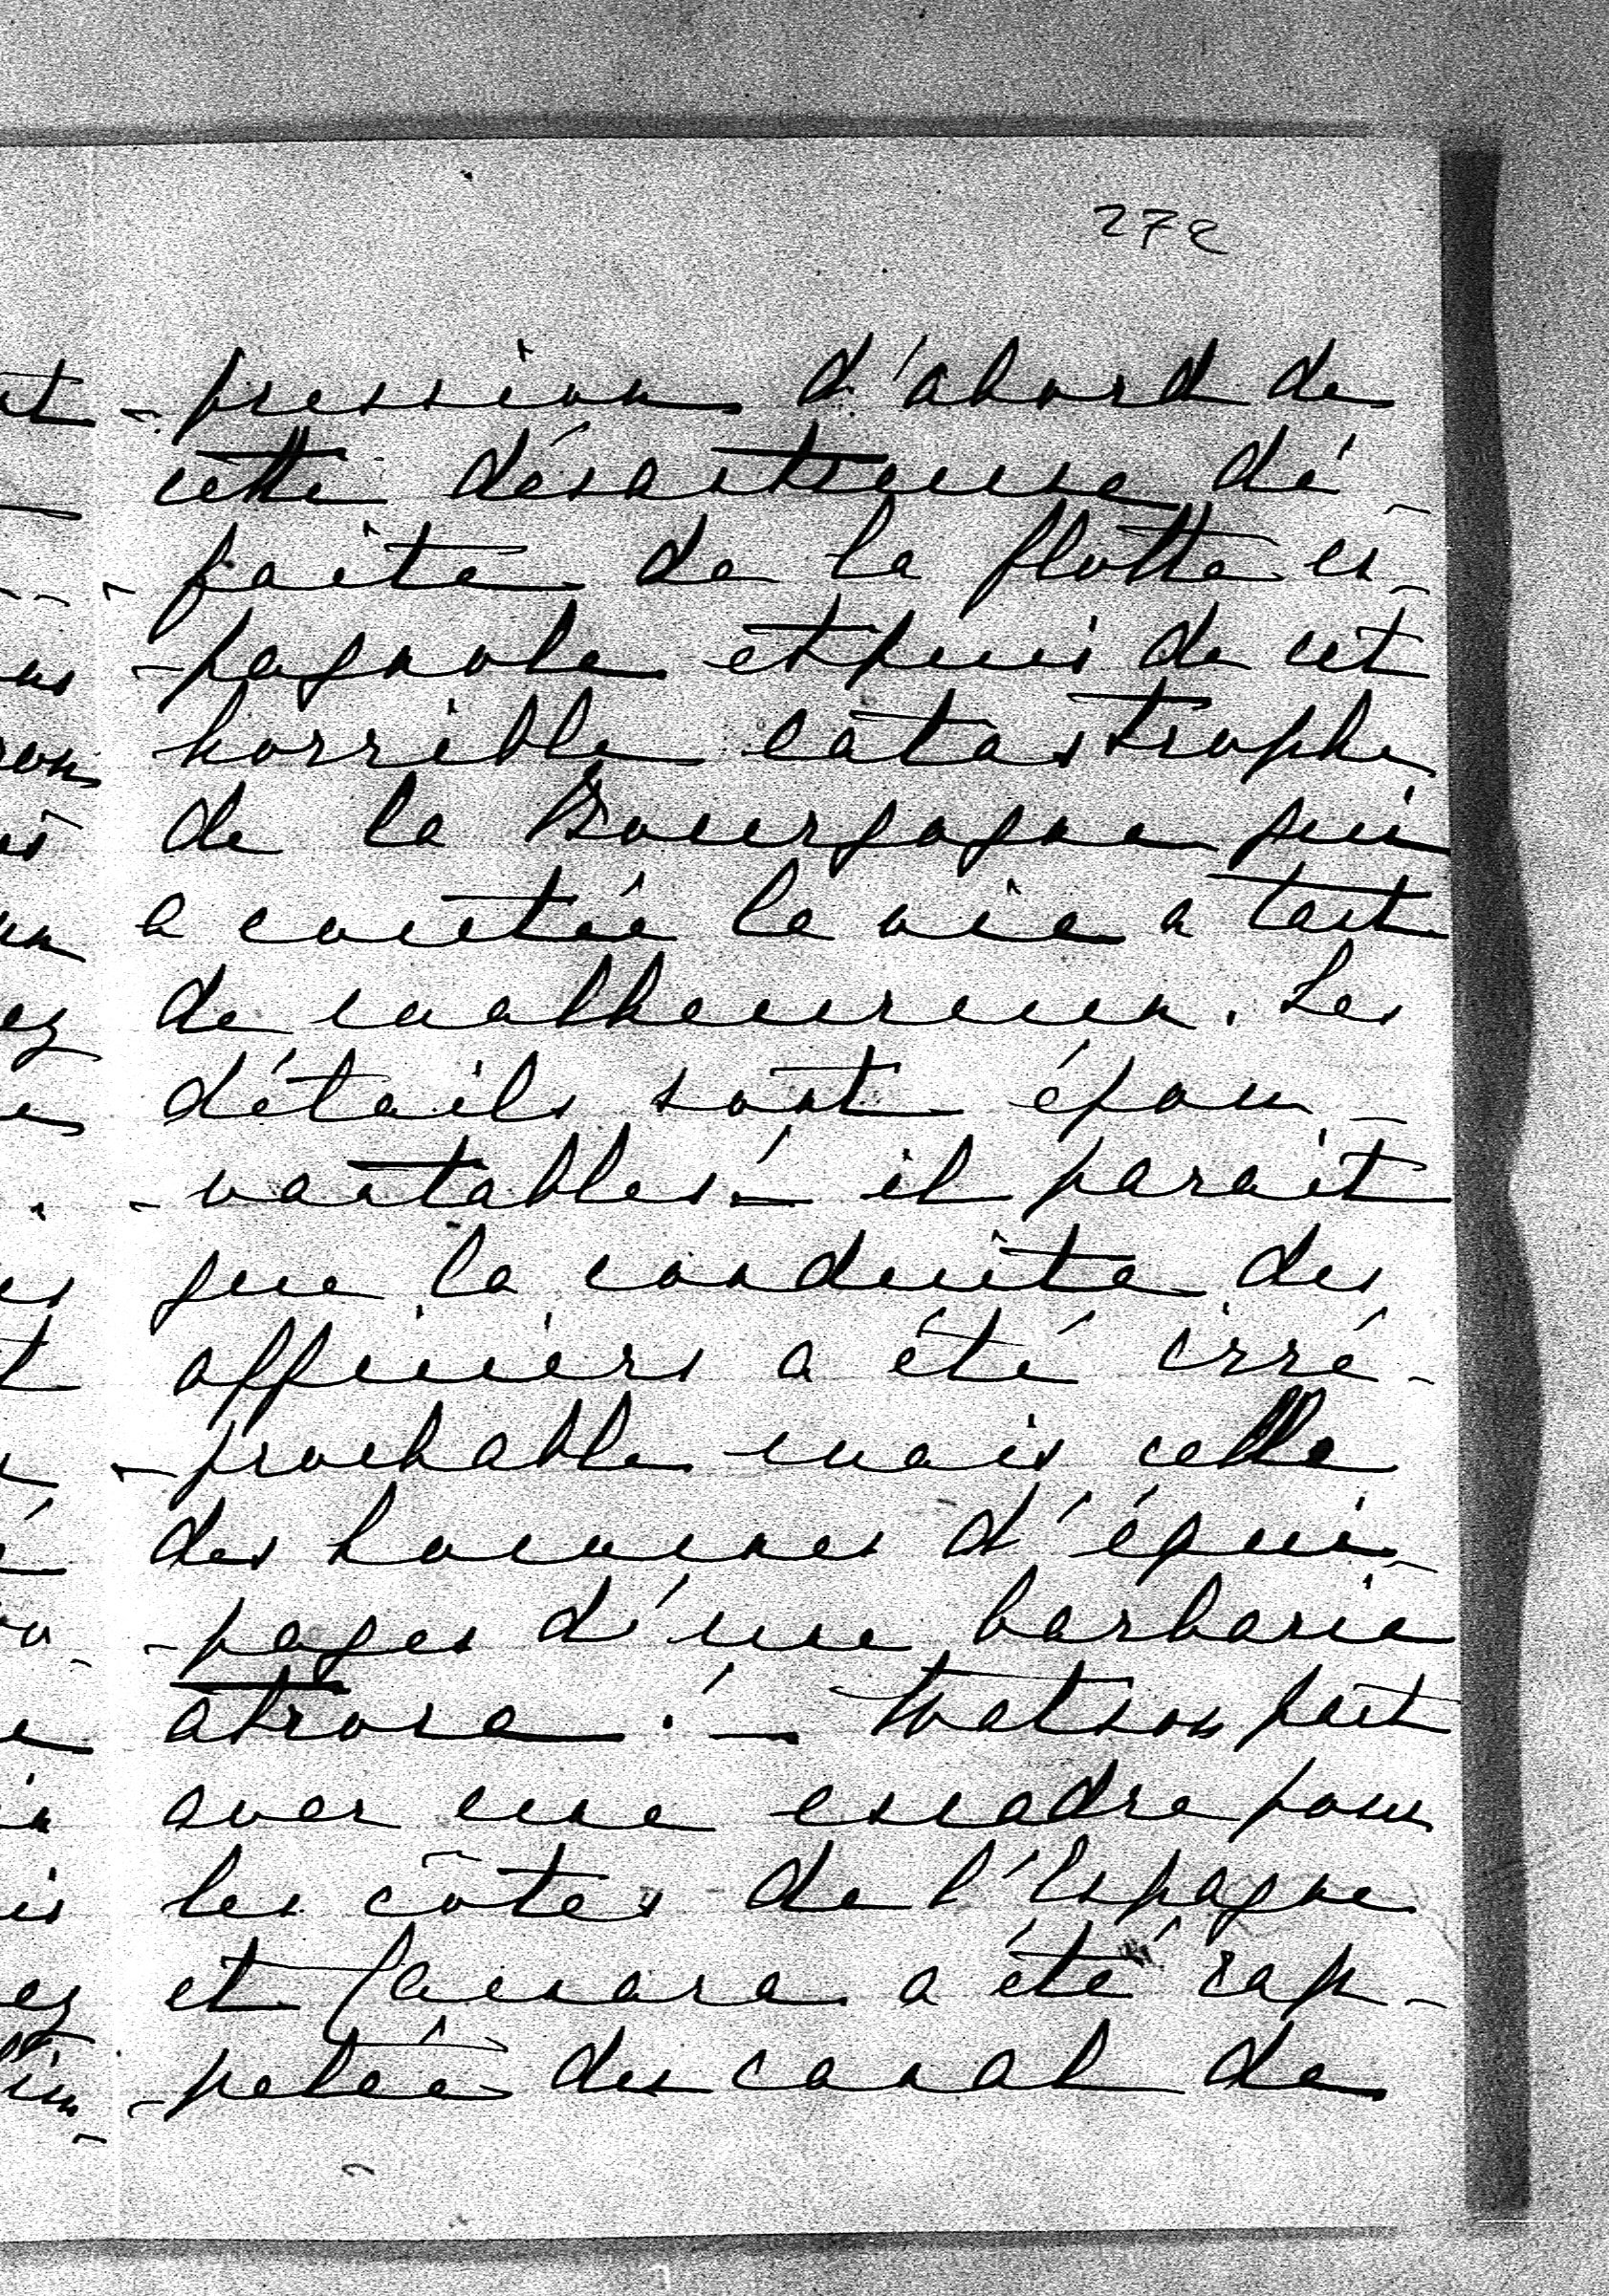 272
-pression d'abord de
cette désastreuse dé-
-faite de la flotte es-
-pagnole et puis de cet
horrible catastrophe
de la Bourgogne qui
a coutée la vie a tant
de malheureux. Les
détails sont épou-
-vantables! — il parait
que la conduite des
officiers a été irré-
-prochable mais celle
des hommes d'équi-
-pages d'une barbarie
atroce! — Watson part
avec une escadre pour
les côtes de l'Espagne
et Camara a été rap-
-pelée des canal de